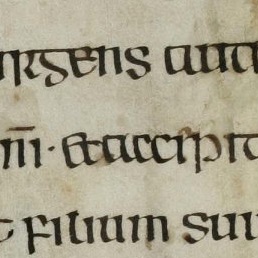 urgens aut
m̄· &accipit
t filium suu